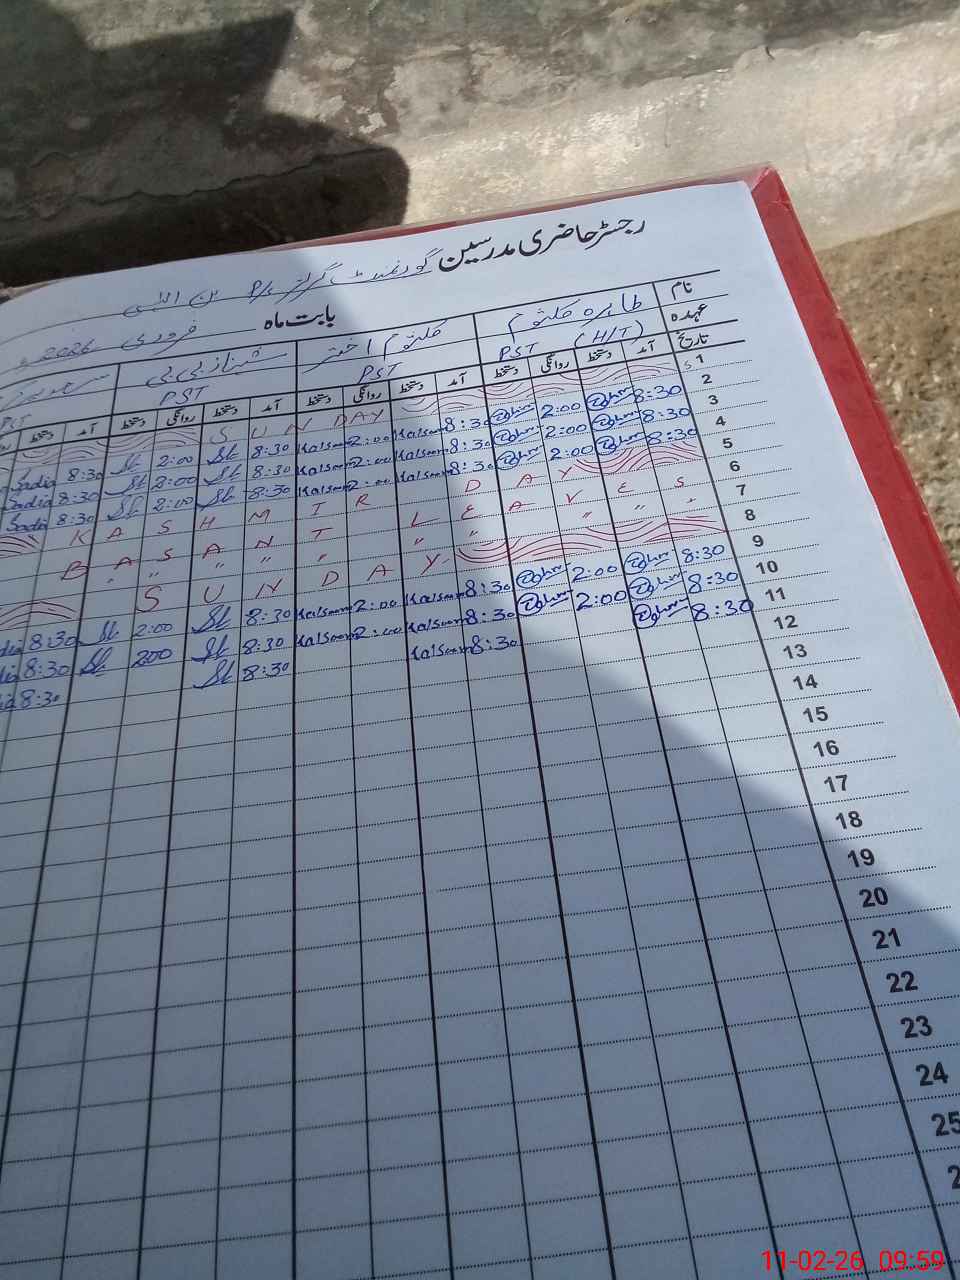 رجسٹر حاضری مدرسین گورنمنٹ گرلز P/S بن
بابت ماہ فروری 2026ء
نام طاہرہ کلثوم کلثوم اختر شہناز بی بی
عہدہ PST (H/T) PST PST
تاریخ آمد دستخط روانگی دستخط آمد دستخط روانگی دستخط آمد دستخط روانگی دستخط آمد دستخط
1 SUNDAY
2 8:30 2:00 8:30 Kalsoom 2:00 Kalsoom 8:30 2:00 8:30 Sadia
3 8:30 2:00 8:30 Kalsoom 2:00 Kalsoom 8:30 2:00 8:30 Sadia
4 8:30 2:00 8:30 Kalsoom 2:00 Kalsoom 8:30 2:00 8:30 Sadia
5 KASHMIR DAY
6 BASANT LEAVES
7 " " " " " " " "
8 SUNDAY
9 8:30 2:00 8:30 Kalsoom 2:00 Kalsoom 8:30 2:00 8:30
10 8:30 2:00 8:30 Kalsoom 2:00 Kalsoom 8:30 2:00 8:30
11 8:30 8:30 Kalsoom 8:30 8:30
12
13
14
15
16
17
18
19
20
21
22
23
24
25
2
11-02-26 09:59